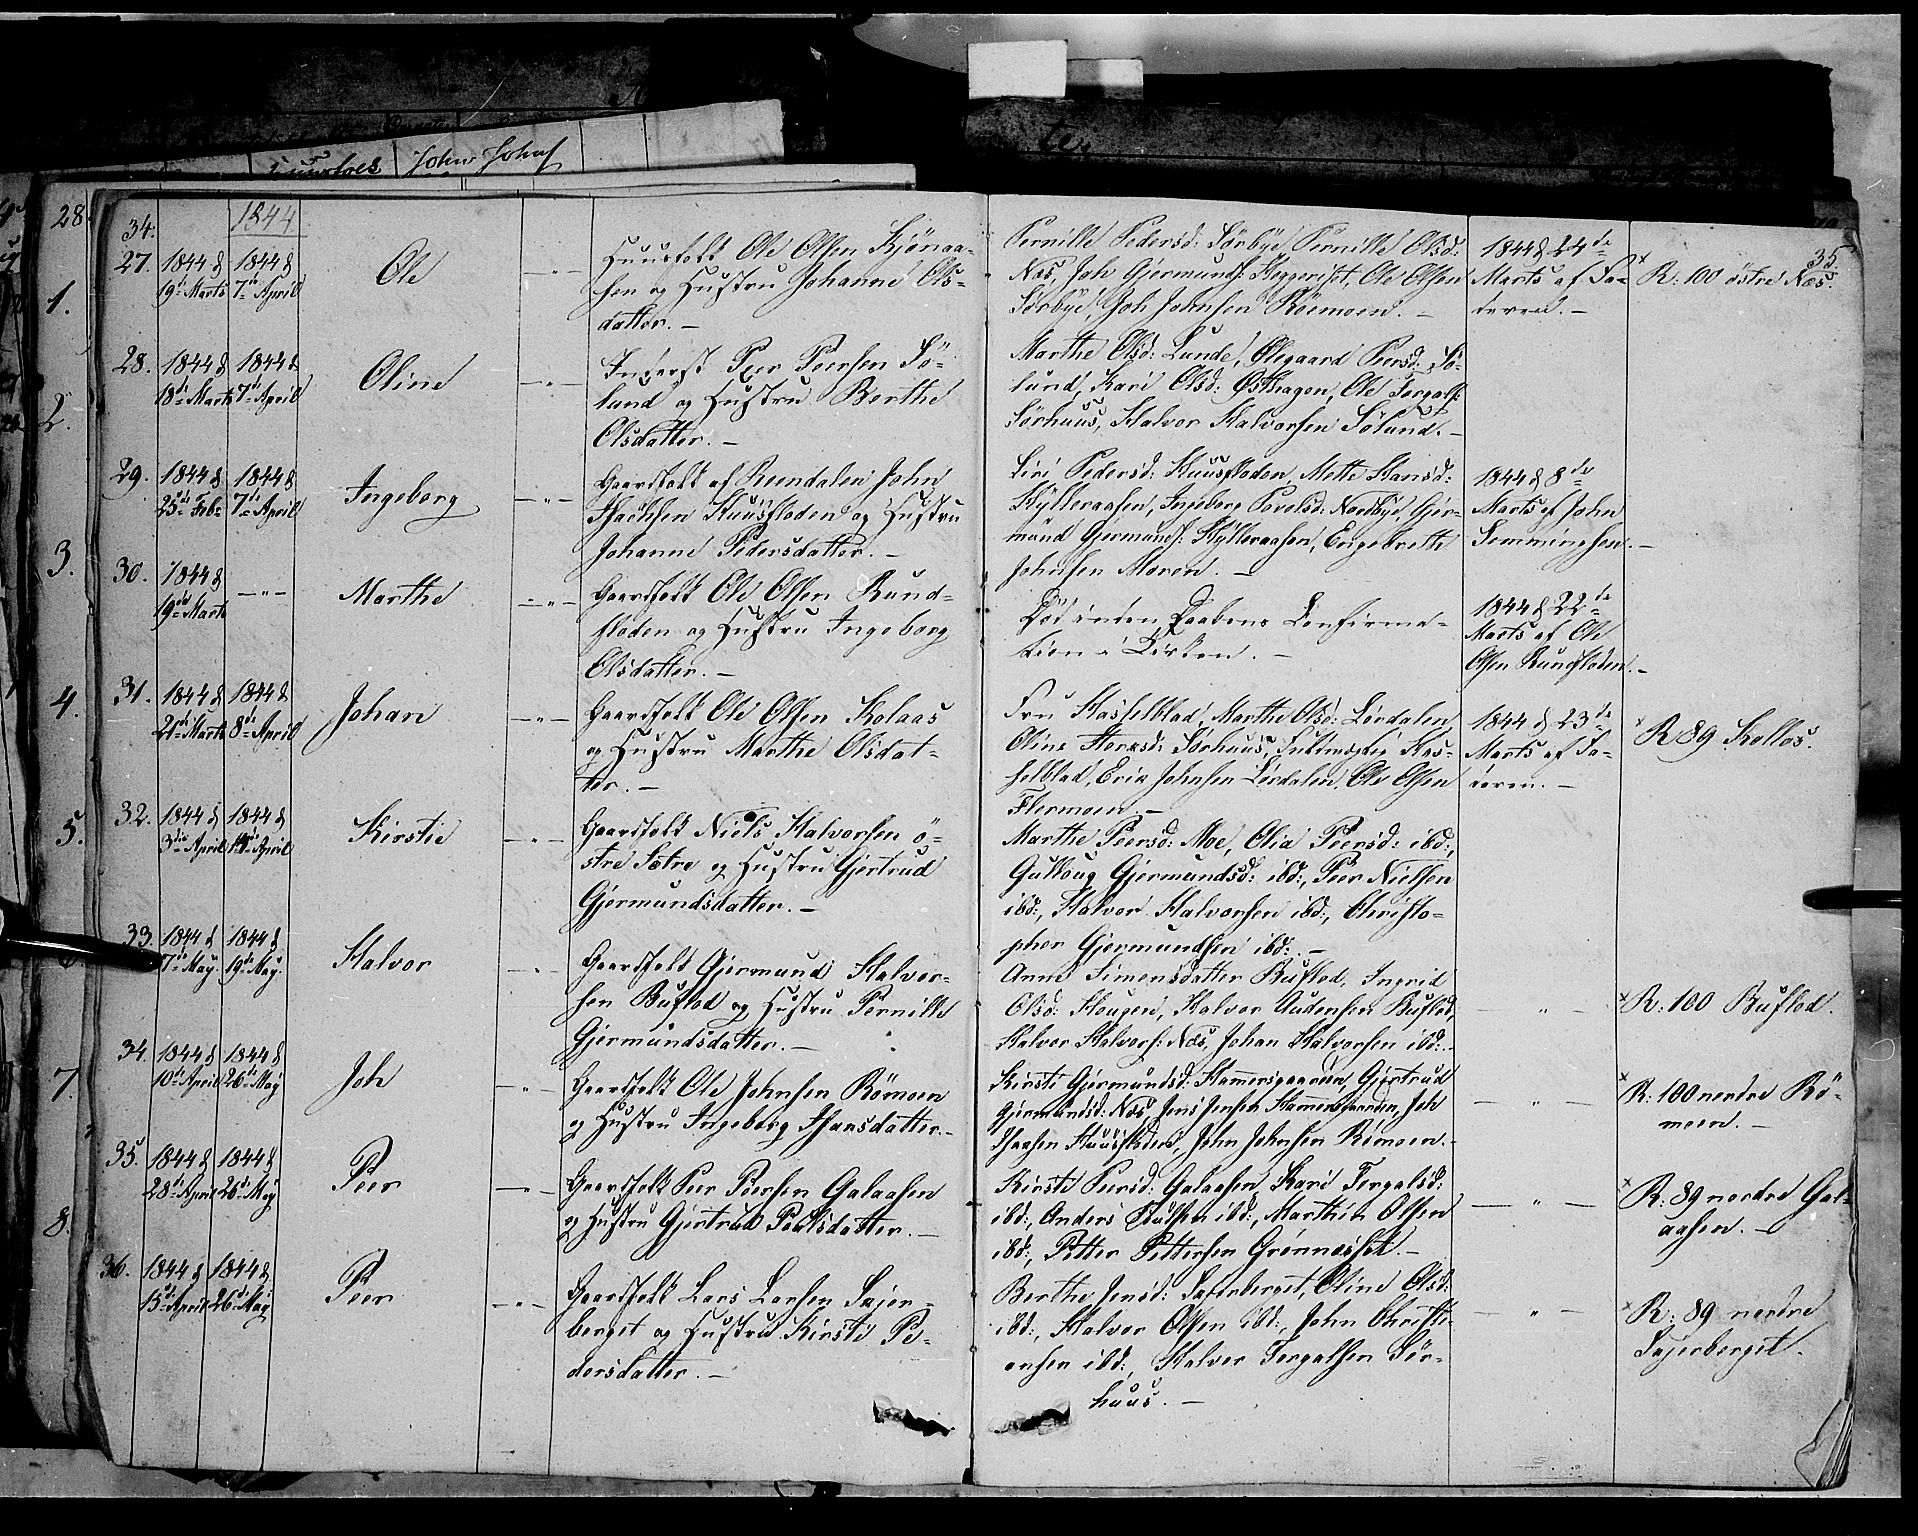 Lundtoes John Johns
28
34.
1844
35
27. 1844 d 19de Marts
1844 d 7de April
Ole
Huusfolk Ole Olsen Kjønaa-
sen og Hustru Johanne Ols-
datter. —
Pernille Pedersd: Sörbye, Pernille Olsd:
Næs, Joh Gjermunds: Heggeriset, Ole Olsen
Sörbye, Joh Johnsen Römoen. —
1844 d 24de
Marts af Fa-
deren. —
R: 100 östre Næs.
28. 1844 d 18de Marts
1844 d 7de April
Oline
Inderst Peer Peersen Sö-
lund og Hustru Berthe
Olsdatter. —
Marthe Olsd: Lunde, Olegaard Peersd: Sö-
lund, Kari Olsd: Østhagen, Ole Torgals:
Sörhuus, Halvor Halvorsen Sölund. —
29. 1844 d 25de Feb:
1844 d 7de April
Ingeborg
Gaardfolk af Reendalen John
Isachsen Huusfloden og Hustru
Johanne Pedersdatter. —
Siri Pedersd: Huusfloden, Mette Hansd:
Hylleraasen, Ingeborg Povelsd: Nordbye, Gjer-
mund Gjermunds: Hylleraasen, Engebrette
Johnsen Moren. —
1844 d 8de
Marts af John
Semmingsen. —
30. 1844 d 19de Marts
— " —
Marthe
Gaardfolk Ole Olsen Rund-
floden og Hustru Ingeborg
Olsdatter. —
Död inden Daabens Confirma-
tion i Kirken. —
1844 d 22de
Marts af Ole
Olsen Rundfloden. —
31. 1844 d 21de Marts
1844 d 8de April
Johan
Gaardfolk Ole Olsen Kolaas
og Hustru Marthe Olsdat-
ter. —
Fru Hasselblad, Marthe Olsd: Lördalen
Oline Sörhuus, Fuldmægtig Has-
selblad, Erik Johnsen Lördalen, Ole Olsen
Flermoen. —
1844 d 23de
Marts af Fa-
deren. —
R 89 Kollos.
32. 1844 d 3die April
1844 d 14de April
Kirstie
Gaardfolk Niels Halvorsen ö-
stre Sætre og Hustru Gjertrud
Gjermundsdatter. —
Marthe Peersd: Moe, Olia Peersd: ibd:,
Gulloug Gjermundsd: ibd:, Peer Nielsen
ibd:, Halvor Halvorsen ibd:, Christo-
pher Gjermundsen ibd:. —
33. 1844 d 7de May
1844 d 19de May
Halvor
Gaardfolk Gjermund Halvor-
sen Bufled og Hustru Pernille
Gjermundsdatter. —
Anne Simensdatter Bufled, Ingrid
Olsd: Hougen, Halvor Audensen Bufled,
Halvor Halvors: Næs, Johan Halvorsen ibd:. —
— " —
R: 100 Bufled.
34. 1844 d 10de April
1844 d 26de May
Joh
Gaardfolk Ole Johnsen Römoen
og Hustru Ingeborg Isaksdatter. —
Kirsti Gjermundsd: Hammersgaarden, Gjertrud
Gjermundsd: Næs, Jens Jensen Hammersgaarden, Joh
Isaksen Huusfloden, John Johnsen Römoen. —
— " —
R: 100 nerdre Rö-
moen. —
35. 1844 d 28de April
1844 d 26de May
Peer
Gaardfolk Peer Peersen Galaasen
og Hustru Gjertrud Paalsdatter. —
Kirsti Peersd: Galaasen, Kari Torgalsd:
ibd:, Anders Paulsen ibd:, Marthin Olsen
ibd:, Petter Pettersen Grönnæsset. —
— " —
R: 89 nordre Gal-
aasen. —
36. 1844 d 13de April
1844 d 26de May
Peer
Gaardfolk Lars Larsen Sajer-
berget og Hustru Kirsti Pe-
dersdatter. —
Berthe Jensd: Sajerberget, Oline Olsd:
ibd:, Halvor Olsen ibd:, John Christi-
ansen ibd:, Halvor Torgalsen Sör-
huus. —
— " —
R: 89 nerdre
Sajerberget.
1.
2.
3.
4.
5.
7.
8.